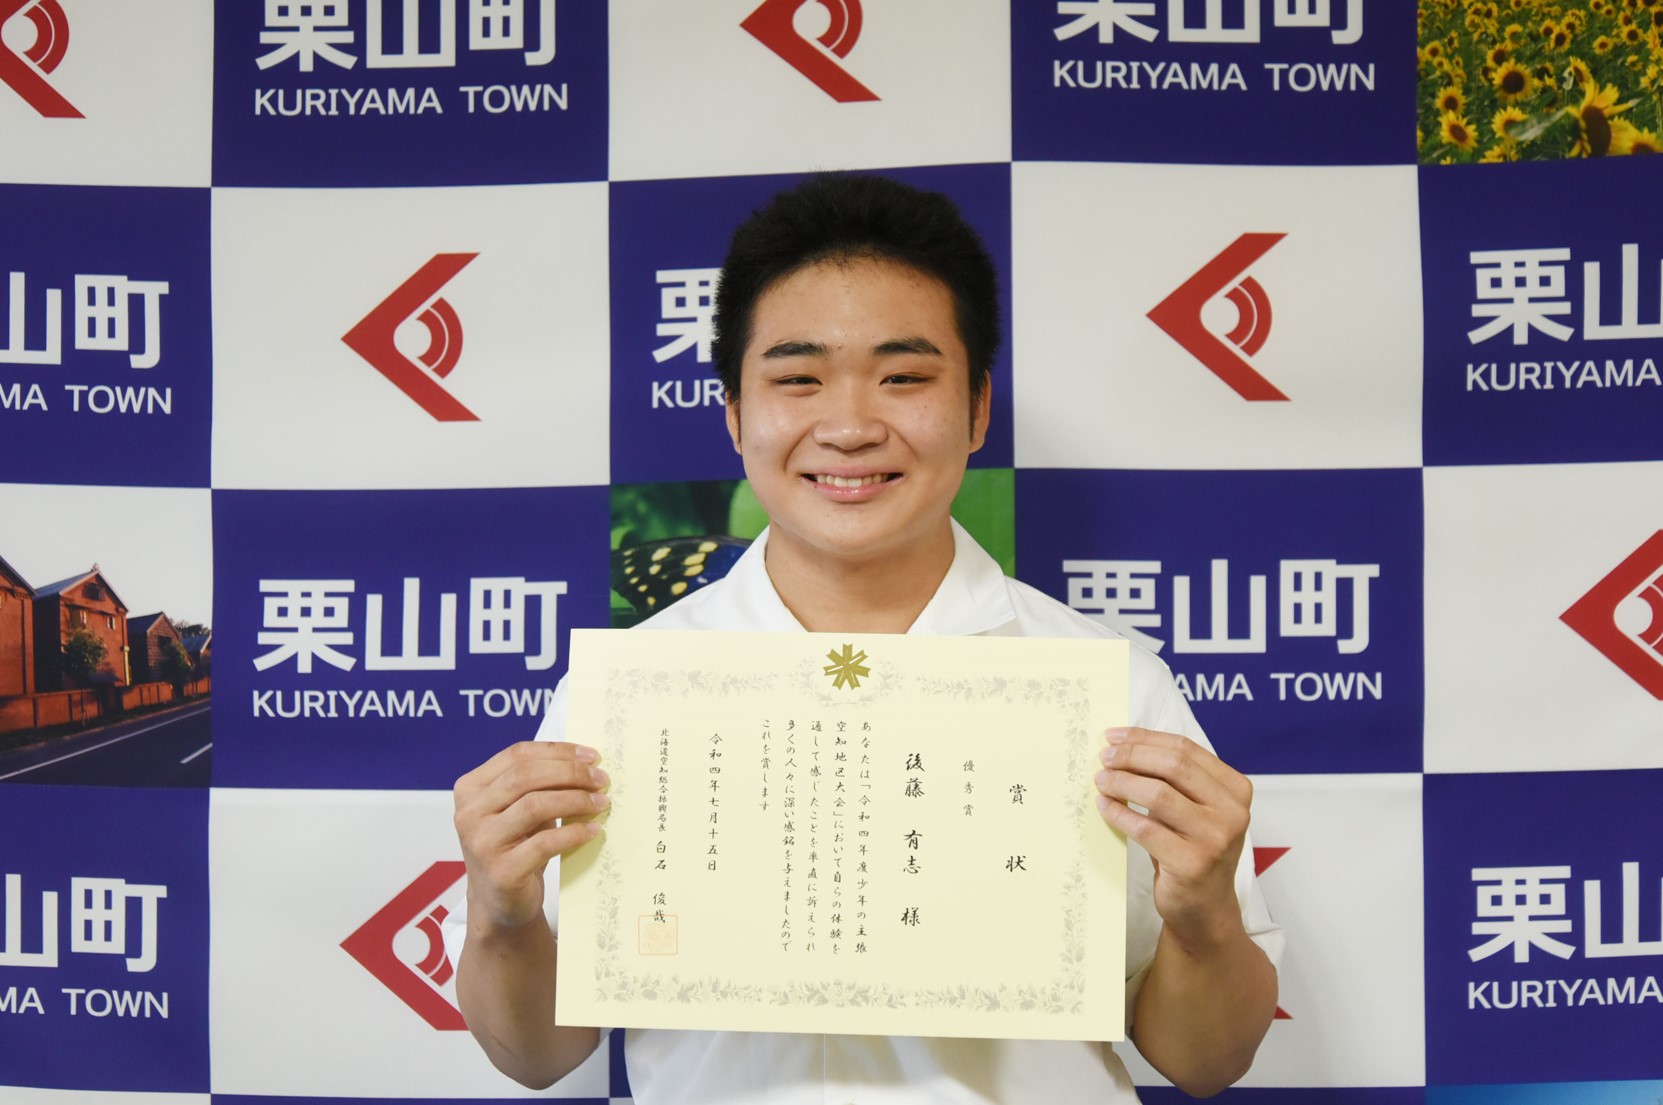 栗山町
KURIYAMA TOWN
栗山町
KURIYAMA TOWN
山町
MA TOWN
栗
KUR
栗山
KURIYAMA
栗山町
KURIYAMA TOWN
栗山町
AMA TOWN
山町
MA TOWN
栗山
KURIYAMA
賞状
優秀賞
後藤 有志 様
あなたは「令和四年度少年の主張
空知地区大会」において自らの体験を
通して感じたことを率直に訴えられ
多くの人々に深い感銘を与えましたので
これを賞します
令和四年七月十五日
北海道空知総合振興局長 白石 俊哉